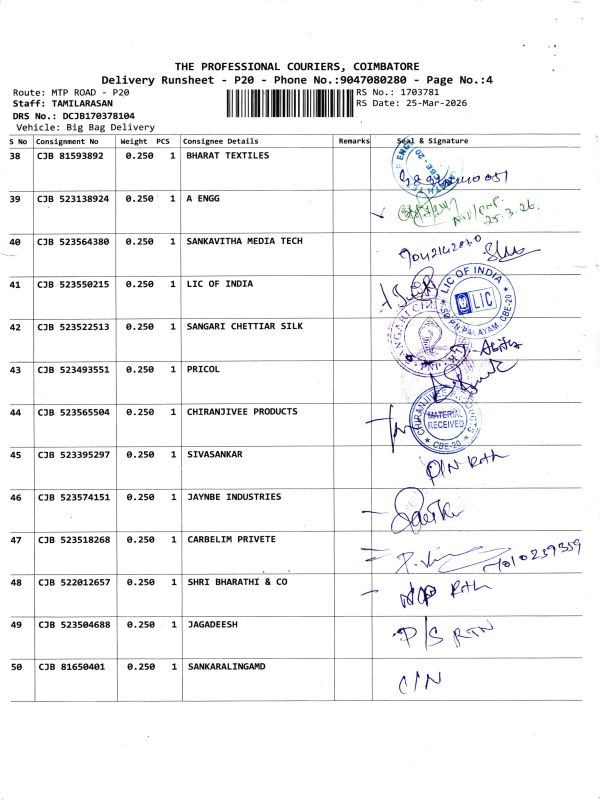 THE PROFESSIONAL COURIERS, COIMBATORE
Delivery Runsheet - P20 - Phone No.:9047080280 - Page No.:4
Route: MTP ROAD - P20
RS No.: 1703781
Staff: TAMILARASAN
RS Date: 25-Mar-2026
DRS No.: DCJB170378104
Vehicle: Big Bag Delivery
S No Consignment No Weight PCS Consignee Details Remarks Seal & Signature
38 CJB 81593892 0.250 1 BHARAT TEXTILES
CBE-20
39 CJB 523138924 0.250 1 A ENGG
25.3.26.
40 CJB 523564380 0.250 1 SANKAVITHA MEDIA TECH
9042142830
41 CJB 523550215 0.250 1 LIC OF INDIA
LIC OF INDIA
LIC
S.R.P.N.PALAYAM, CBE-20
42 CJB 523522513 0.250 1 SANGARI CHETTIAR SILK
43 CJB 523493551 0.250 1 PRICOL
44 CJB 523565504 0.250 1 CHIRANJIVEE PRODUCTS
CHIRANJIVEE PRODUCTS
MATERIAL
RECEIVED
CBE-20
45 CJB 523395297 0.250 1 SIVASANKAR
46 CJB 523574151 0.250 1 JAYNBE INDUSTRIES
47 CJB 523518268 0.250 1 CARBELIM PRIVETE
48 CJB 522012657 0.250 1 SHRI BHARATHI & CO
49 CJB 523504688 0.250 1 JAGADEESH
P/S RTN
50 CJB 81650401 0.250 1 SANKARALINGAMD
C/N